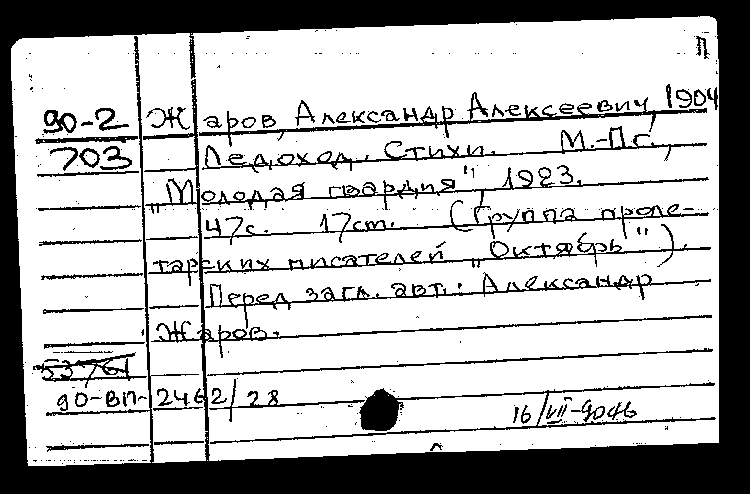 П
90-2 Жаров, Александр Алексеевич, 1904
703 Ледоход. Стихи. М.-Пг.,
„Молодая гвардия", 1923.
47с. 17cm. (Группа проле-
тарских писателей „Октябрь").
Перед загл. авт.: Александр
Жаров.
53761
90-ВП-2462/28
16/VII-90